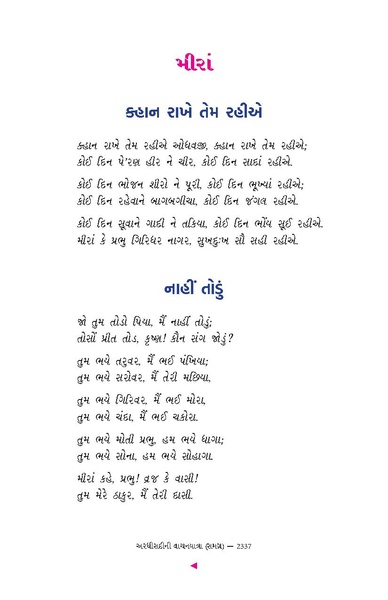 મીરાં
ક્હાન રાખે તેમ રહીએ
ક્હાન રાખે તેમ રહીએ ઓધવજી, ક્હાન રાખે તેમ રહીએ;
કોઈ દિન પે'રણ હીર ને ચીર, કોઈ દિન સાદાં રહીએ.
કોઈ દિન ભોજન શીરો ને પૂરી, કોઈ દિન ભૂખ્યાં રહીએ;
કોઈ દિન રહેવાને બાગબગીચા, કોઈ દિન જંગલ રહીએ.
કોઈ દિન સૂવાને ગાદી ને તકિયા, કોઈ દિન ભોંય સૂઈ રહીએ.
મીરાં કે પ્રભુ ગિરિધર નાગર, સુખદુઃખ સૌ સહી રહીએ.
નાહીં તોડું
જો તુમ તોડો પિયા, મૈં નાહીં તોડું;
તોસોં પ્રીત તોડ, કૃષ્ણ! કૌન સંગ જોડું?
તુમ ભયે તરુવર, મૈં ભઈ પંખિયા;
તુમ ભયે સરોવર, મૈં તેરી મછિયા,
તુમ ભયે ગિરિવર, મૈં ભઈ મોરા,
તુમ ભયે ચંદા, મૈં ભઈ ચકોરા.
તુમ ભયે મોતી પ્રભુ, હમ ભયે ધાગા;
તુમ ભયે સોના, હમ ભયે સોહાગા.
મીરાં કહે, પ્રભુ! વ્રજ કે વાસી!
તુમ મેરે ઠાકુર, મૈં તેરી દાસી.
અરધીસદીની વાચનયાત્રા (સમગ્ર) — 2337